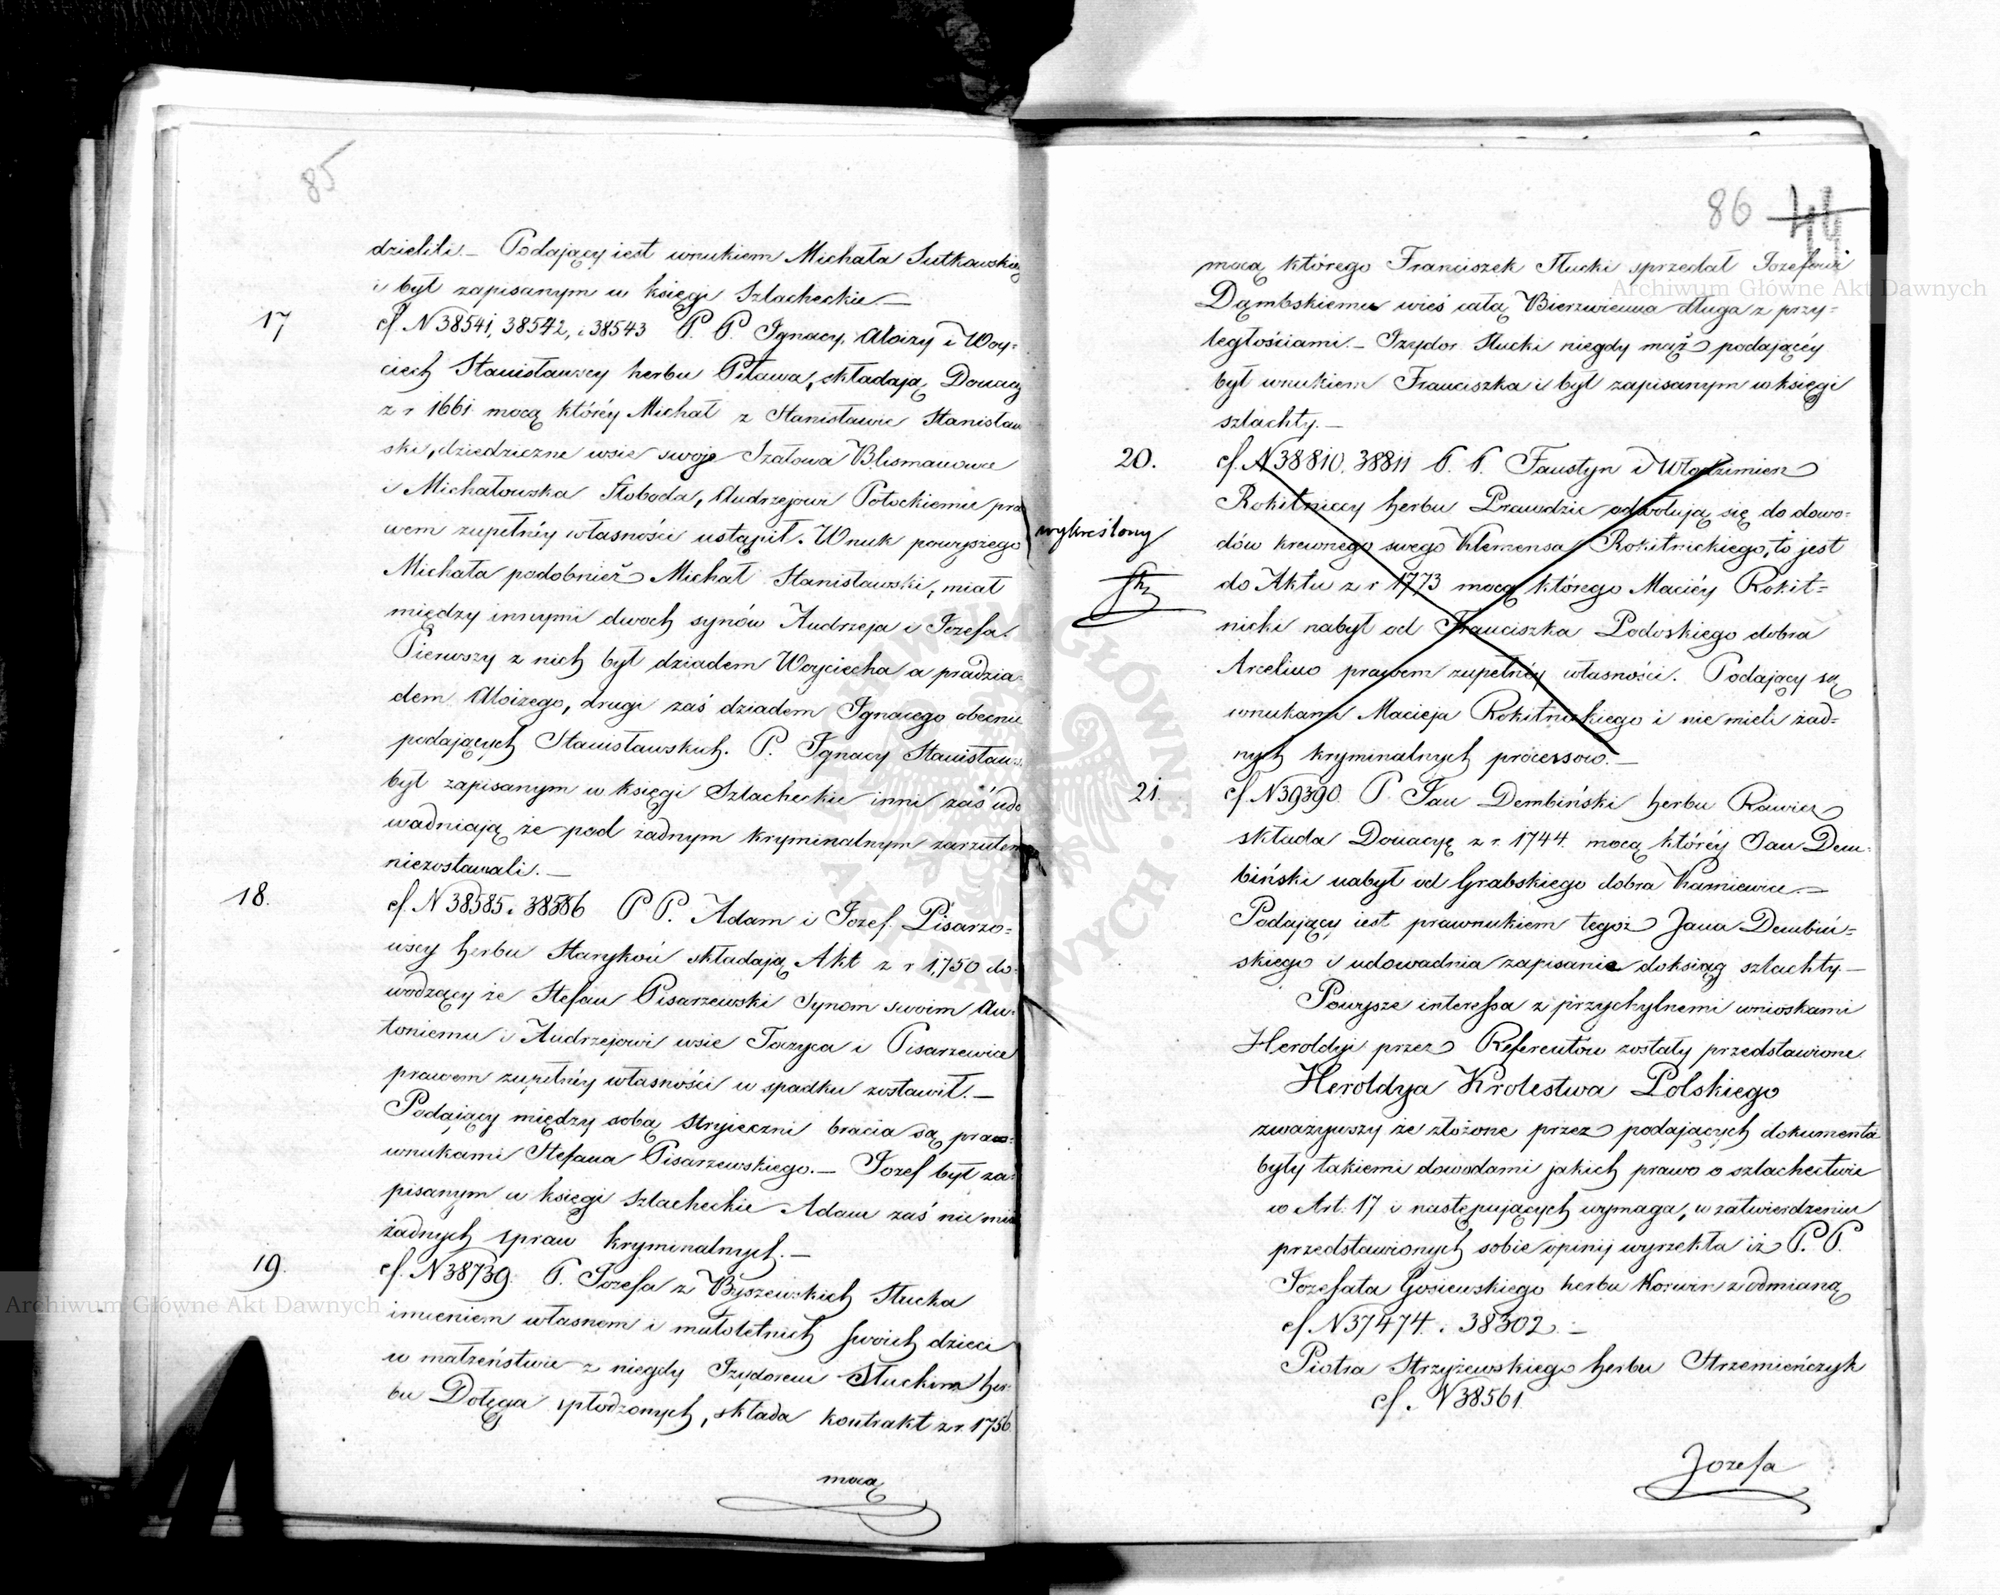 85
dzielili.— Podający iest wnukiem Michała Sutkowskieg
i był zapisanym w księgi Szlacheckie —
17
cf. N 38541, 38542, i 38543 P. P. Ignacy, Aloizy i Woy-
ciech Stanisławscy herbu Piława, składają Donacyę
z r 1661 mocą któréy Michał z Stanisławic Stanisław
ski, dziedziczne wsie swoje Szatowa Blismanowce
i Michałowska Słoboda, Andrzejowi Potockiemu pra
wem zupełnéy własności ustąpił. Wnuk powyższego
Michała podobnież Michał Stanisławski, miał
między innymi dwoch synów Andrzeja i Jozefa.
Pierwszy z nich był dziadem Woyciecha a pradzia
dem Aloizego, drugi zaś dziadem Ignacego obecnie
podających Stanisławskich. P. Ignacy Stanisławs
był zapisanym w księgi Szlacheckie inni zaś udo
wadniają że pod żadnym kryminalnym zarzutem
niezostawali. —
18.
cf. N 38585 i 38586 P P. Adam i Jozef Pisarzo=
wscy herbu Starykoń składają Akt z r 1,750 do-
wodzący że Stefan Pisarzewski Synom swoim An-
toniemu i Andrzejowi wsie Toczyca i Pisarzewice
prawem zupełnéy własności w spadku zostawił. —
Podaiący między sobą stryieczni bracia są praw=
wnukami Stefana Pisarzewskiego. — Jozef był za-
pisanym w księgi szlacheckie Adam zaś nie miał
żadnych spraw kryminalnych. —
19.
cf. N 38739. P. Jozefa z Byszewskich Słucka
imieniem własnem i małoletnich swoich dzieci
w małżeństwie z niegdy Izydorem Słuckim her-
bu Dołęga spłodzonych, składa kontrakt z r. 1756
mocą
86 44.
mocą którego Franciszek Słucki sprzedał Jozefowi
Dąmbskiemu wieś całą Bierzwienna długa z przy=
ległościami. — Izydor Słucki niegdy mąż podającéy
był wnukiem Franciszka i był zapisanym w księgi
szlachty. —
20.
cf. N 38810. 38811 P. P. Faustyn i Włodzimierz
Rokitniccy herbu Prawdzic odwołują się do dowo-
wykreślony
dów krewnego swego Klemensa Rokitnickiego, to jest
do Aktu z r 1773 mocą którego Maciéy Rokit=
nicki nabył od Franciszka Podoskiego dobra
Arcelino prawem zupełnéy własności. Podający są
wnukami Macieja Rokitnickiego i nie mieli żad=
nych kryminalnych processow. —
21.
cf. N 39390. P. Jan Dembiński herbu Rawicz
składa Donacyę z r. 1744. mocą któréy Jan Dem-
biński nabył od Grabskiego dobra Karniewice. —
Podający iest prawnukiem tegoż Jana Dembiń=
skiego i udowadnia zapisanie do ksiąg szlachty. —
Powyższe interessa z przychylnemi wnioskami
Heroldyi przez Referentów zostały przedstawione
Heroldya Krolestwa Polskiego
zważywszy że złożone przez podających dokumenta
były takiemi dowodami jakich prawo o szlachectwie
w Art. 17 i następujących wymaga, w zatwierdzeniu
przedstawionych sobie opinij wyrzekła iż P. P.
Jozefata Gosiewskiego herbu Korwin z odmianą
cf N 37474. i 38302 —
Piotra Strzyżewskiego herbu Strzemieńczyk
cf. N 38561
Jozefa
Archiwum Główne Akt Dawnych
Archiwum Główne Akt Dawnych
ARCHIWUM GŁÓWNE AKT DAWNYCH